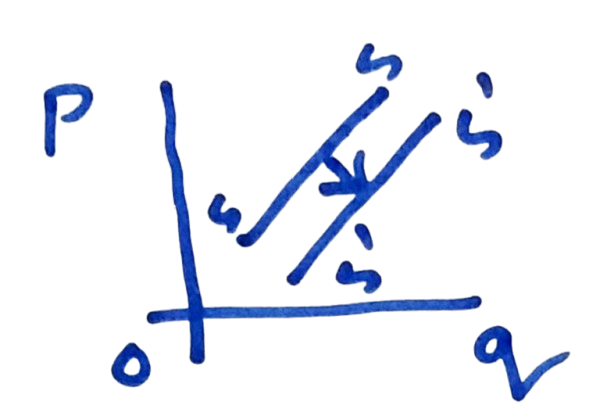 P
S
S'
S
S'
O
q